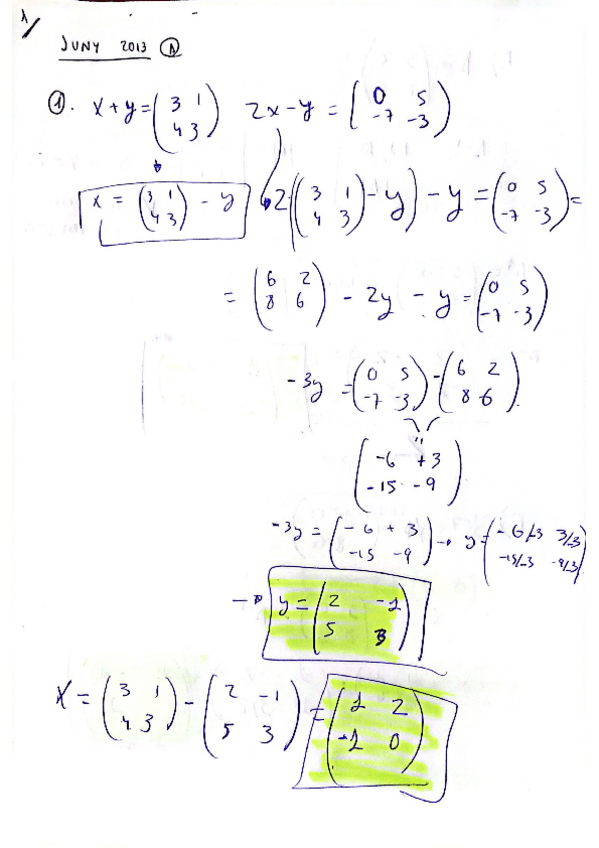 1/
JUNY 2013 Ⓐ
①. x+y = (3 1; 4 3) 2x-y = (0 5; -7 -3)
x = (3 1; 4 3) - y → 2((3 1; 4 3) - y) - y = (0 5; -7 -3) =
= (6 2; 8 6) - 2y - y = (0 5; -7 -3)
-3y = (0 5; -7 -3) - (6 2; 8 6)
"
(-6 +3; -15 -9)
-3y = (-6 +3; -15 -9) → y = (-6/-3 3/-3; -15/-3 -9/-3)
→ y = (2 -1; 5 3)
X = (3 1; 4 3) - (2 -1; 5 3) = (1 2; -1 0)